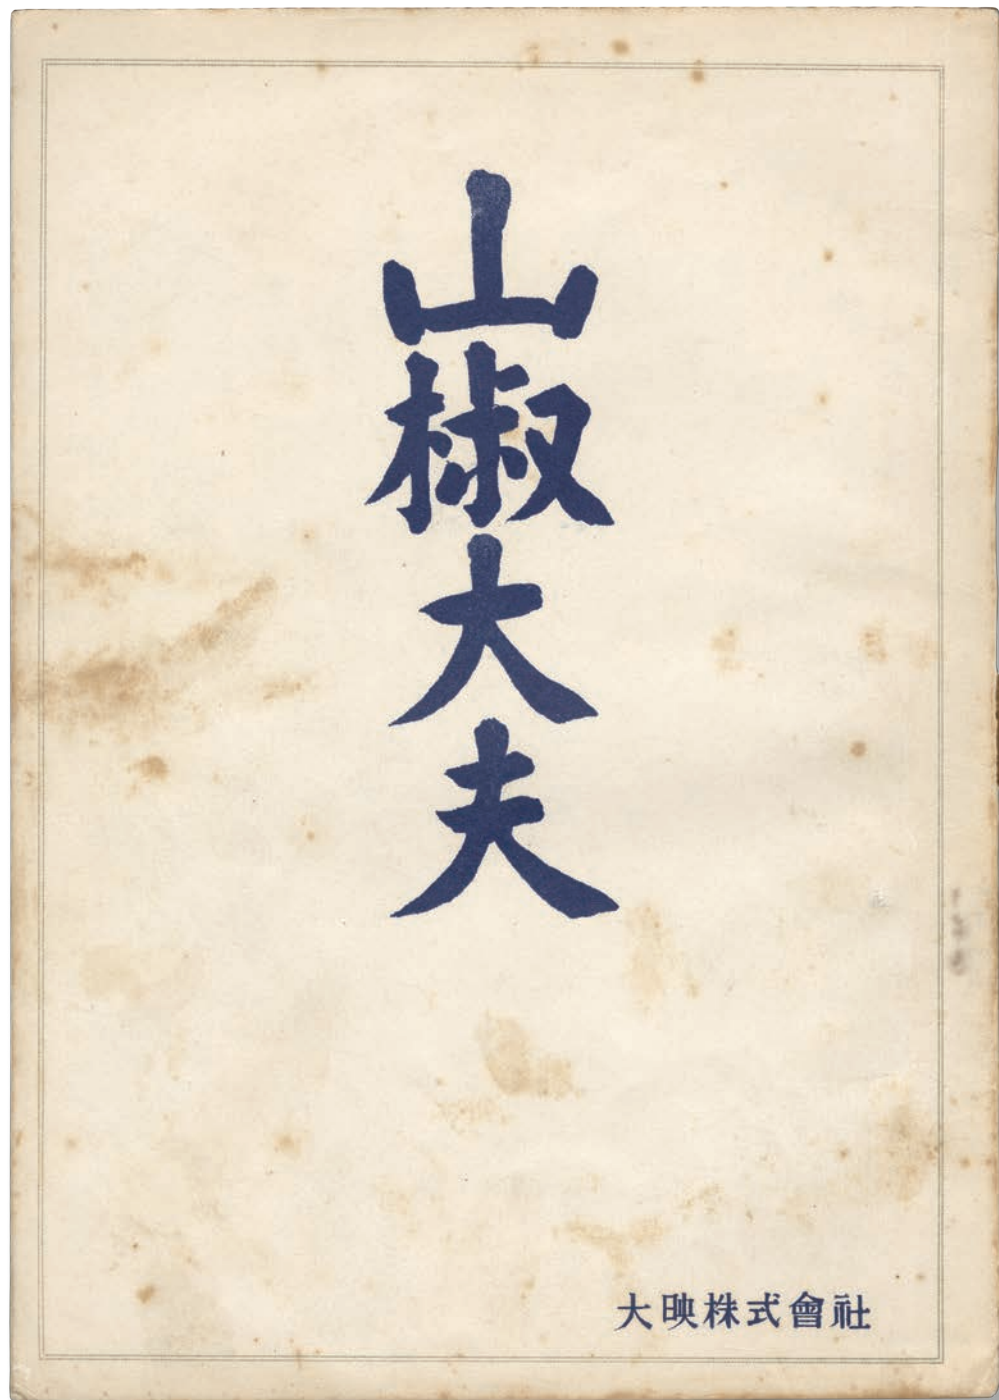 山椒大夫
大映株式會社